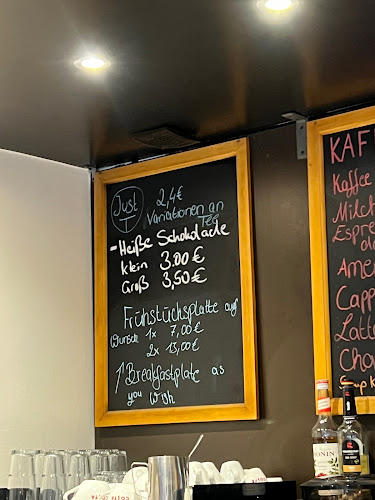 Just
T
2,4€
Variationen an
Tee
-Heiße Schokolade
klein 3.00€
Groß 3,50€
Frühstücksplatte auf
Wunsch 1x 7,00€
2x 13,00€
↑ Breakfastplate as
you wish
KAF
Kaffee
Milch
Espre
Amer
Capp
Latte
Cha
MONIN